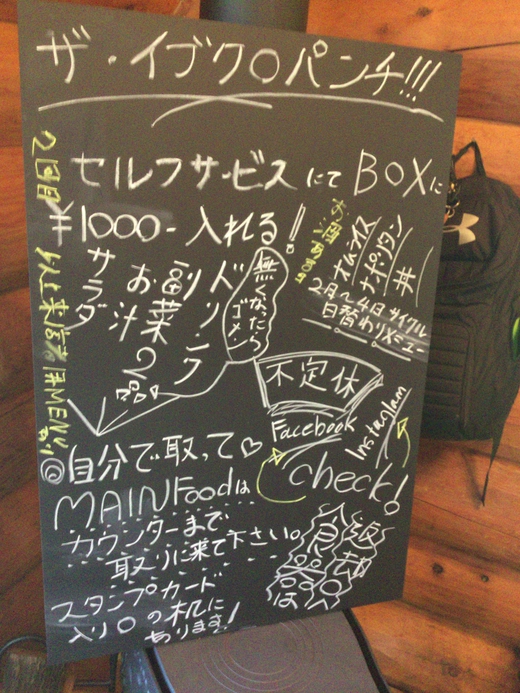 ザ・イブクロパンチ!!!
セルフサービスにて BOXに
¥1000-入れる!
ドリンク
副菜2
お汁
サラダ
無くなったらゴメン
オムライス
ナポリタン
丼
2月~4日サイクル
日替わりメニュー
不定休
Facebook
Instaglam
check!
◎自分で取って♡
MAINFoodは
カウンターまで
取りに来て下さい。
スタンプカード
入り口の机に
あります!
2回目